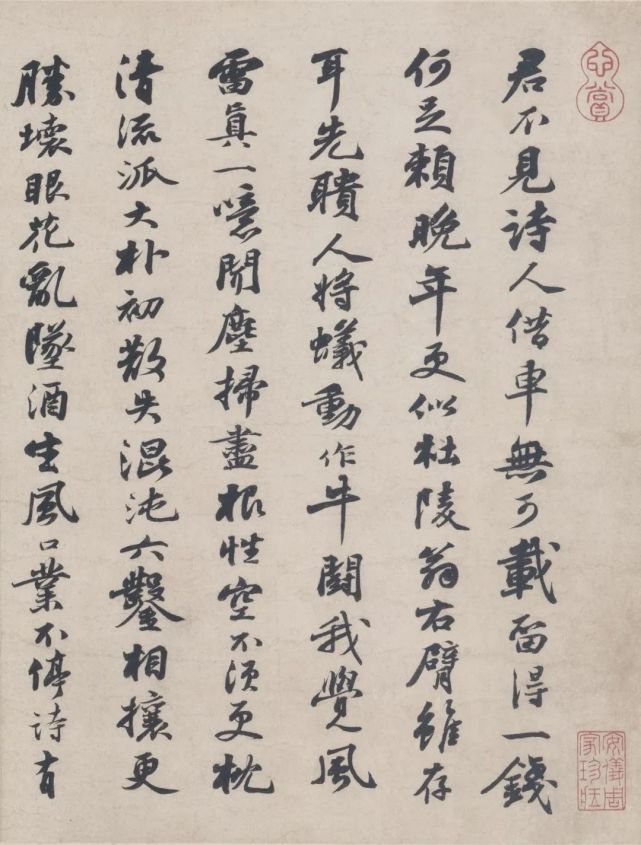 心賞
君不見詩人借車無可載留得一錢
何足賴晚年更似杜陵翁右臂雖存
耳先聵人將蟻動作牛鬪我覺風
雷眞一噫聞塵掃盡根性空不須更枕
清流派大朴初散失混沌六鑿相攘更
勝壞眼花亂墜酒生風口業不停詩有
安儀周家珍藏